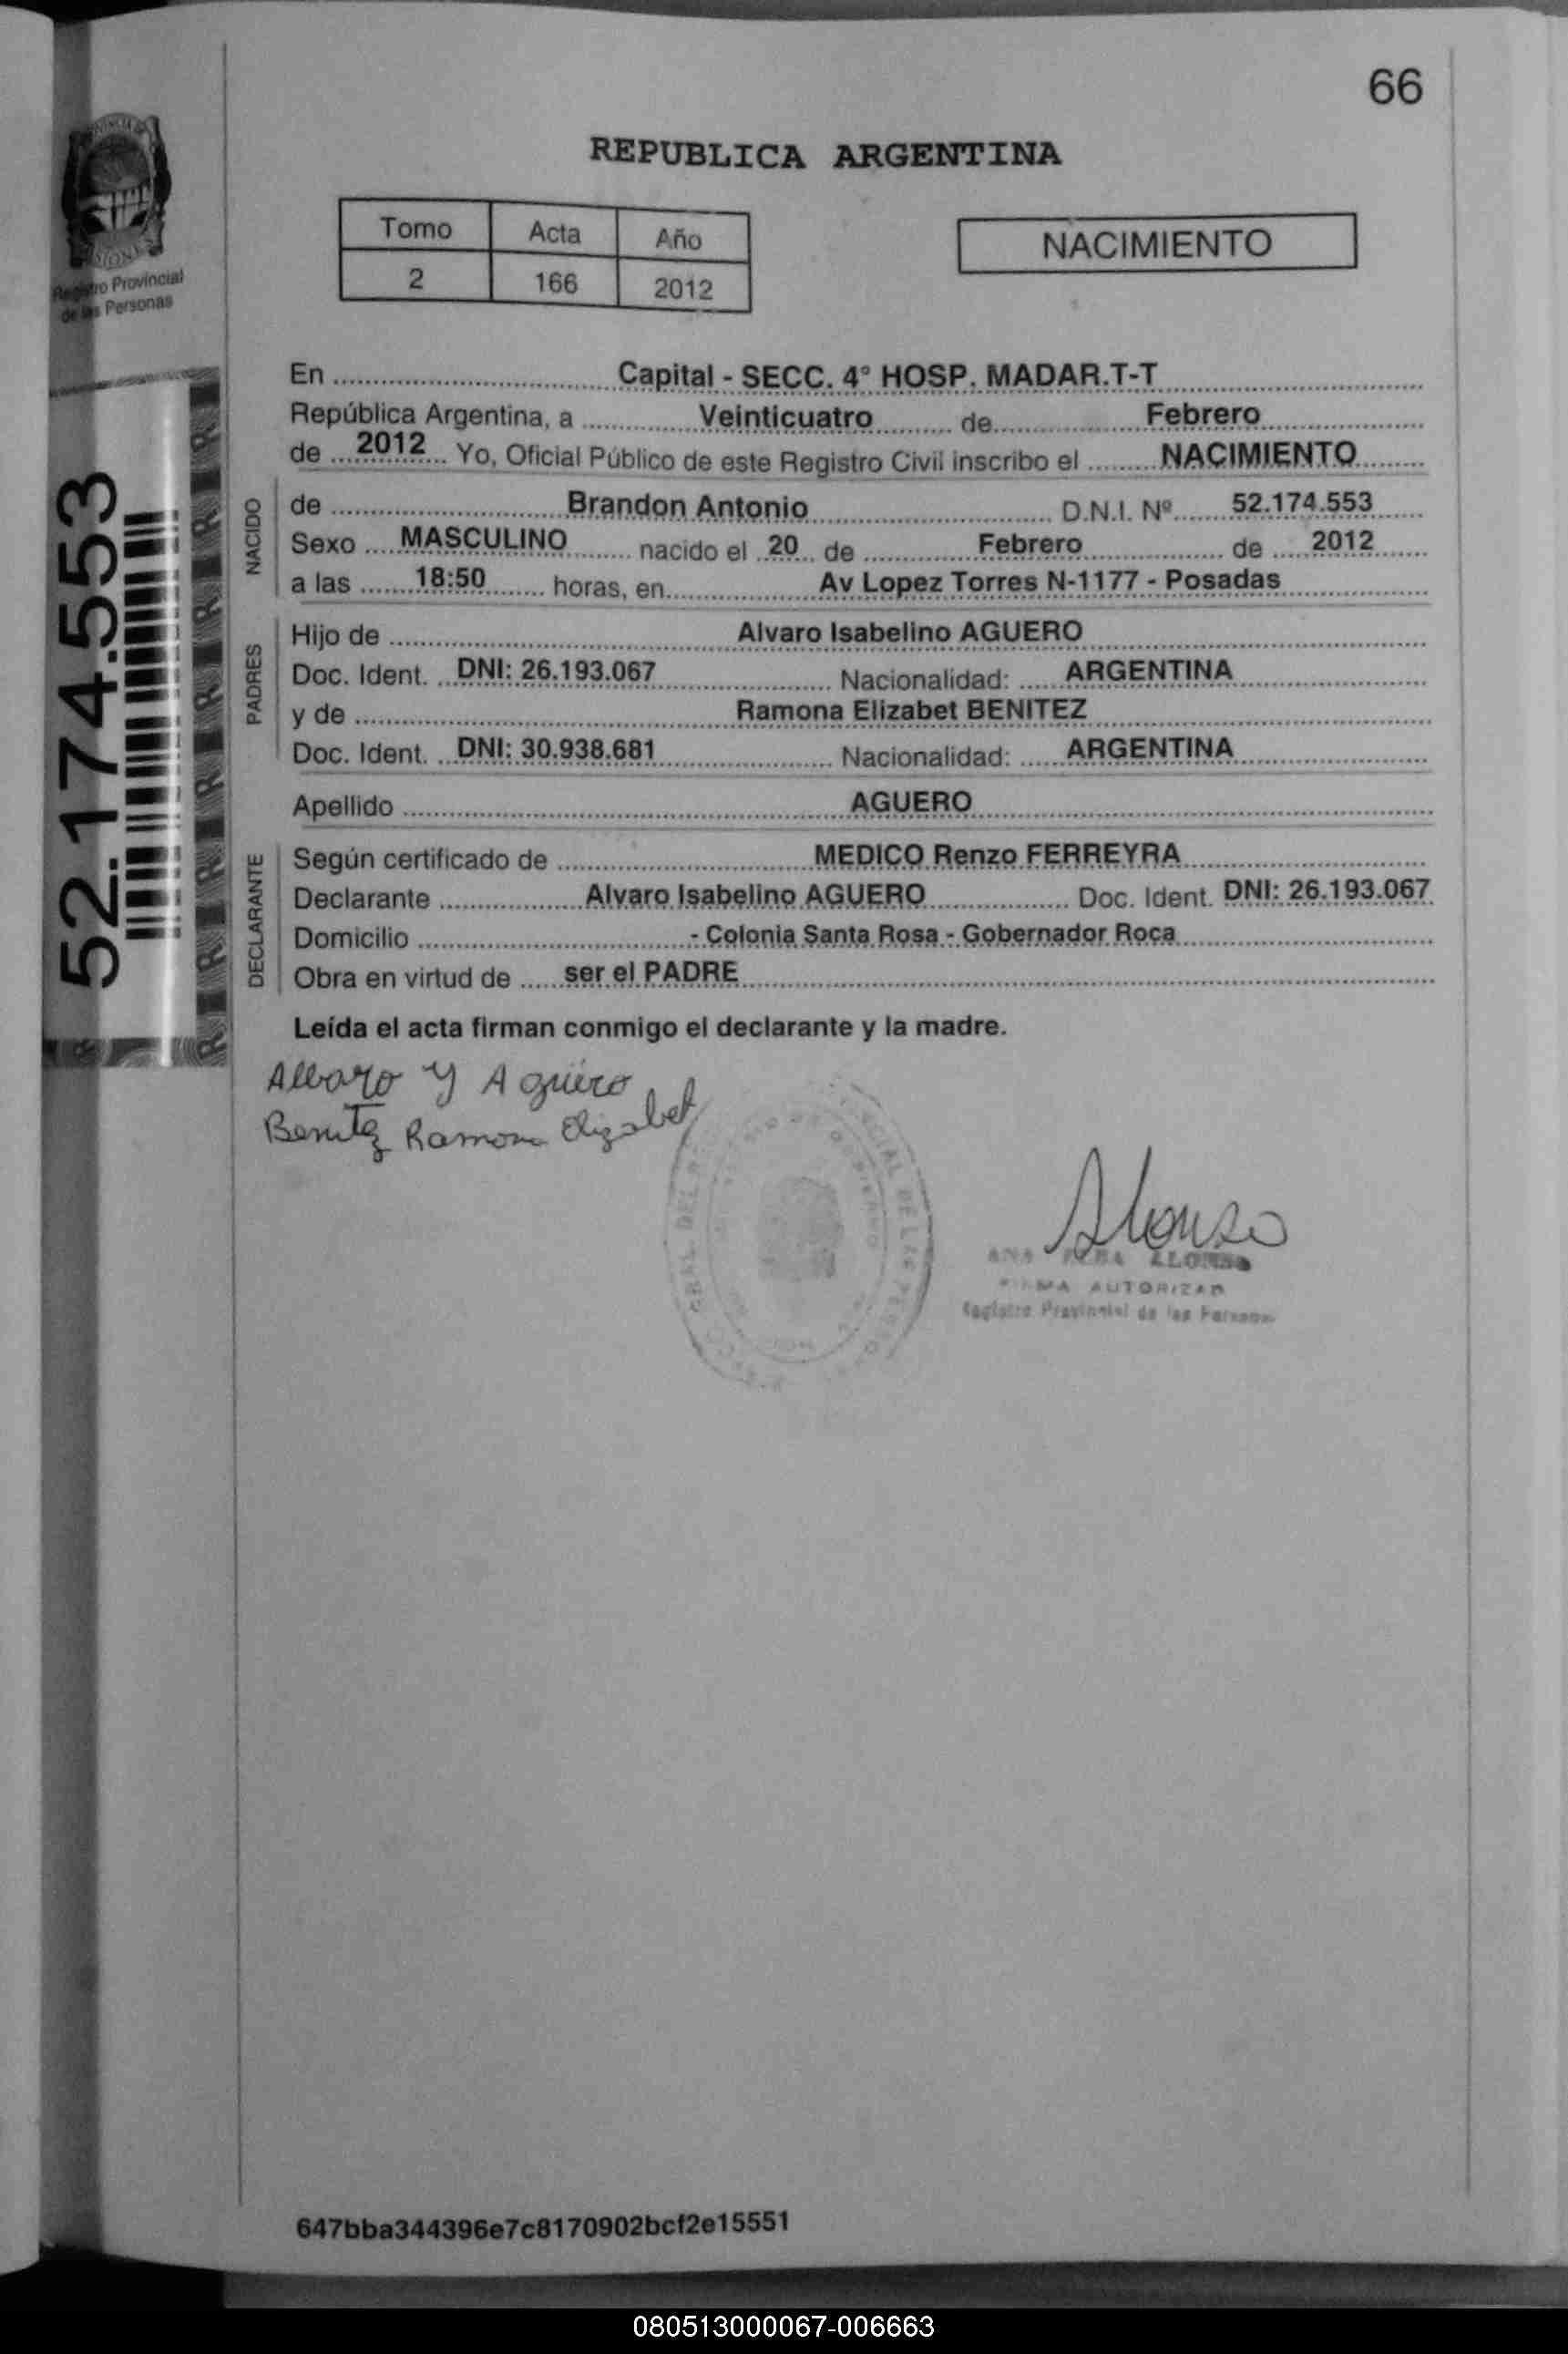 66
REPUBLICA ARGENTINA
Tomo Acta Año
2 166 2012
NACIMIENTO
Registro Provincial
de las Personas
52.174.553
En Capital - SECC. 4° HOSP. MADAR.T-T
República Argentina, a Veinticuatro de Febrero
de 2012 Yo, Oficial Público de este Registro Civil inscribo el NACIMIENTO
NACIDO
de Brandon Antonio D.N.I. Nº 52.174.553
Sexo MASCULINO nacido el 20 de Febrero de 2012
a las 18:50 horas, en Av Lopez Torres N-1177 - Posadas
PADRES
Hijo de Alvaro Isabelino AGUERO
Doc. Ident. DNI: 26.193.067 Nacionalidad: ARGENTINA
y de Ramona Elizabet BENITEZ
Doc. Ident. DNI: 30.938.681 Nacionalidad: ARGENTINA
Apellido AGUERO
DECLARANTE
Según certificado de MEDICO Renzo FERREYRA
Declarante Alvaro Isabelino AGUERO Doc. Ident. DNI: 26.193.067
Domicilio - Colonia Santa Rosa - Gobernador Roca
Obra en virtud de ser el PADRE
Leída el acta firman conmigo el declarante y la madre.
Albaro Y Agüero
Benitez Ramona Elizabet
Alonso
ANA ALONSO
FIRMA AUTORIZAD
Registro Provincial de las Personas
647bba344396e7c8170902bcf2e15551
080513000067-006663